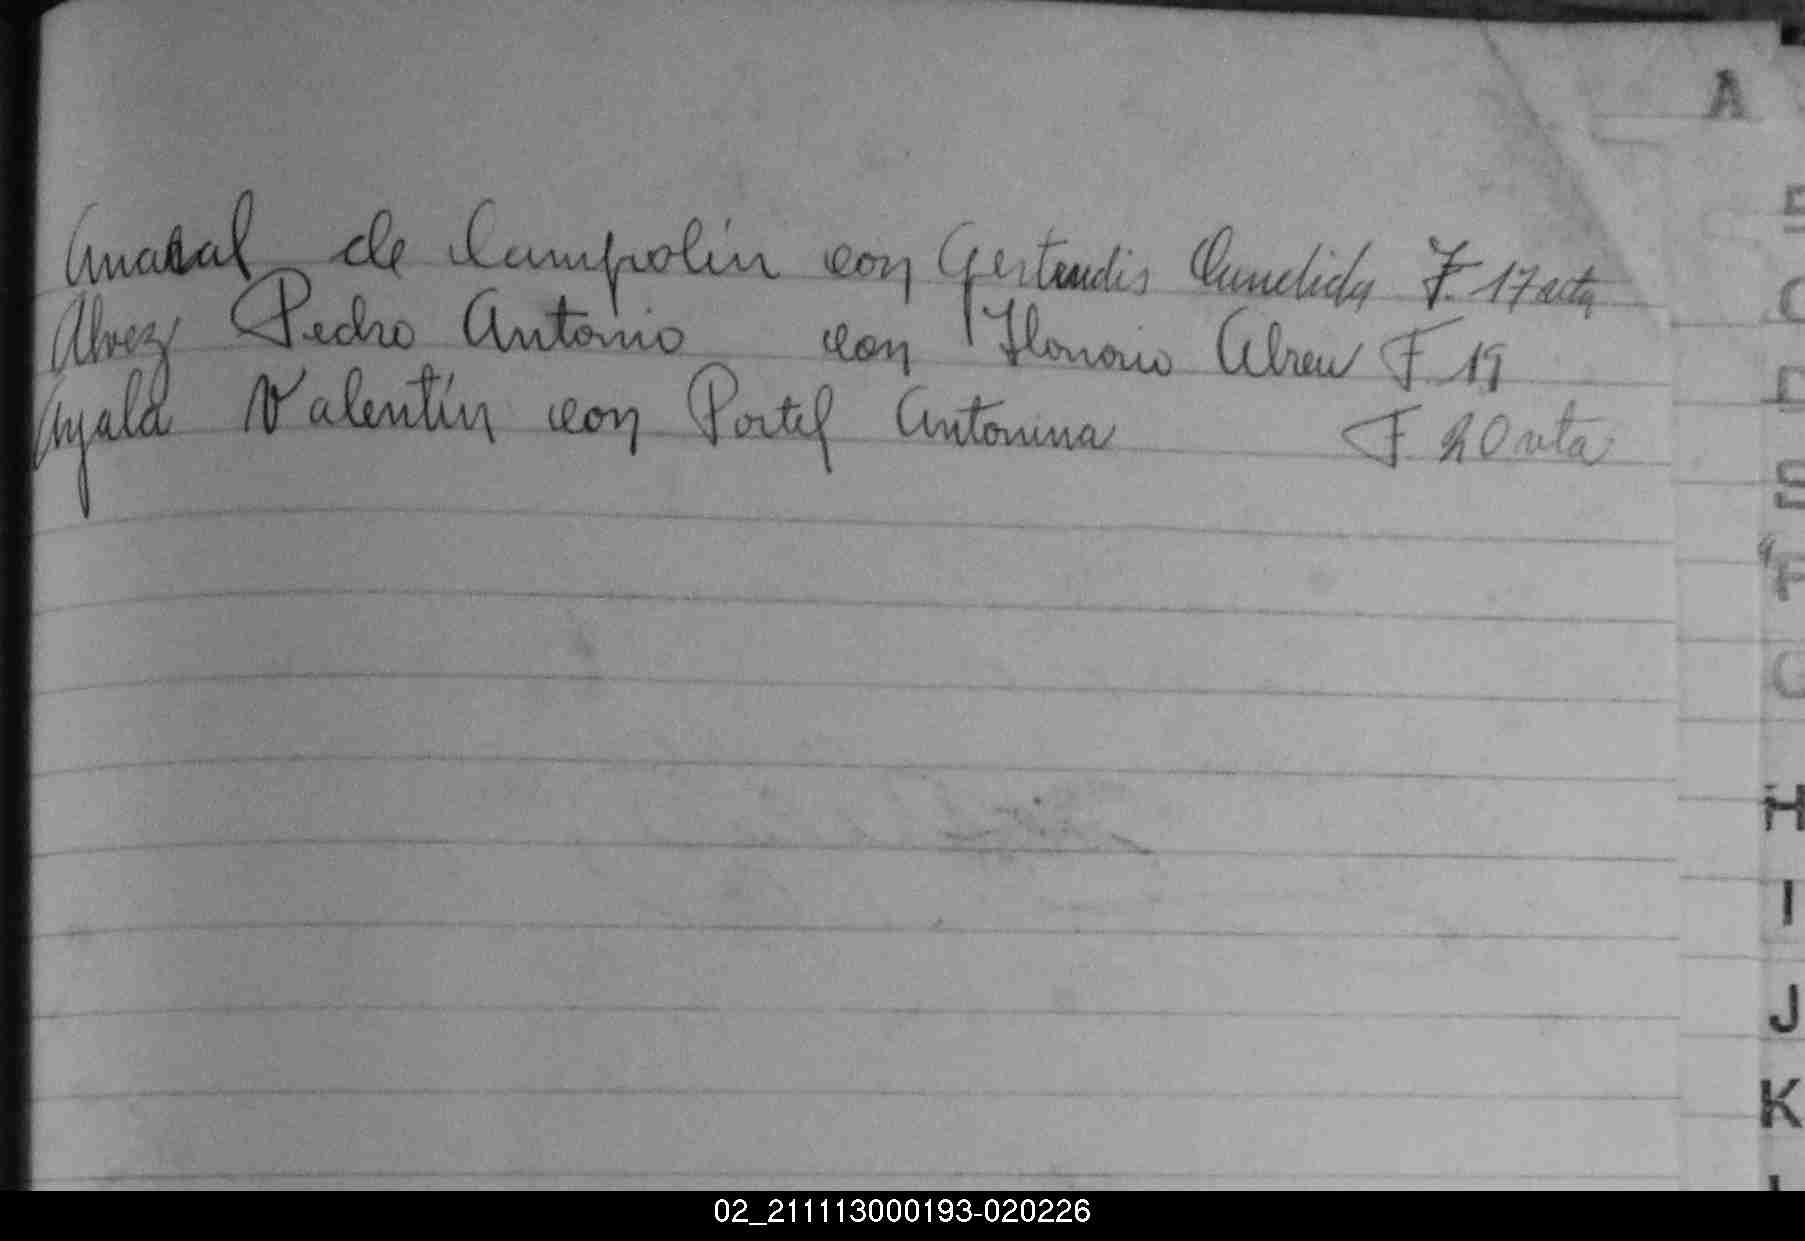 A
Amaral de Campolin con Gertrudis Candida F. 17 acta
Alvez Pedro Antonio con Honorio Abreu F. 19
Ayala Valentín con Portel Antonina F. 20 vta
C
F
G
H
I
J
K
02_211113000193-020226